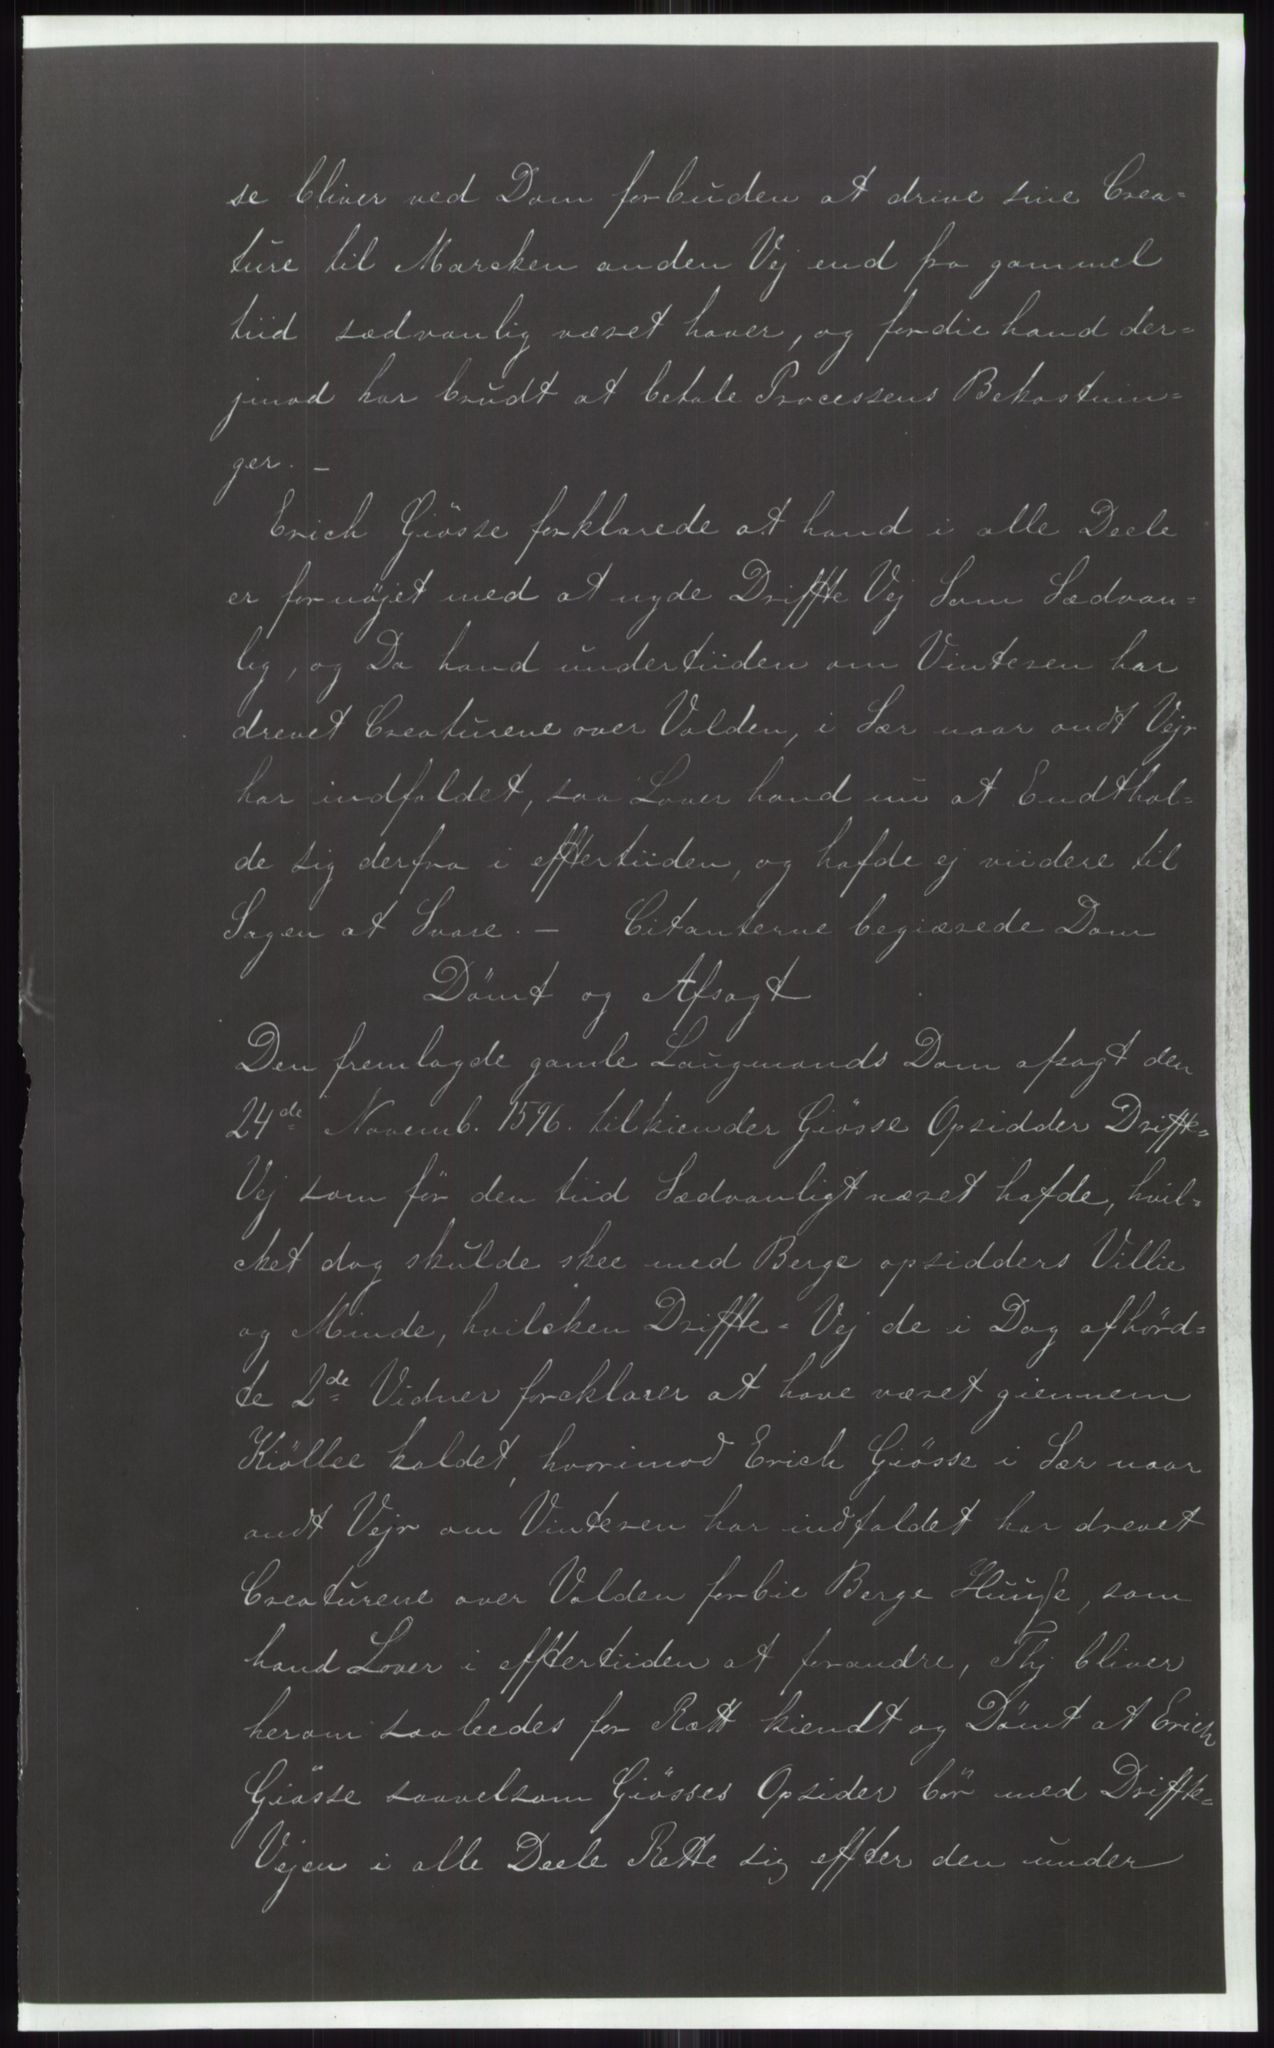 se bliver ved Dom forbuden at drive sine Crea=
ture til Marsken anden Vej end fra gammel
tiid sædvanlig været haver, og fordie hand der=
jmod har brudt at betale Processens Bekostnin=
ger. —
Erich Giösse forklarede at hand i alle Deele
er fornøjet med at nyde Driffte Vej Som Sædvan=
lig, og Da hand undertiiden om Vinteren har
drevet Creaturene over Volden, i Sær naar ondt Vejr
har indfaldet, saa Lover hand nu at Endthol=
de sig derfra i efftertiiden, og hafde ej viidere til
Sagen at Svare. — Citanterne begiærede Dom
Dömt og Afsagt
Den fremlagde gamle Laugmands Dom afsagt den
24de Novemb. 1596. tilkiender Giösse Opsidder Driffte=
Vej som för den tiid Sædvanligt været hafde, hvil=
cket dog skulde skee med Berge opsidders Villie
og Minde, hvilcken Driffte= Vej de i Dag afhörd=
te 2de Vidner forcklarer at have været giennem
Kiöllee kaldet, hvorimod Erich Giösse i Sær naar
ondt Vejr om Vinteren har indfaldet har drevet
Creaturene over Volden forbie Berge Huuse, som
hand Lover i efftertiiden at forandre, Thj bliver
herom saaleedes for Rætt kiendt og Dömt at Erich
Giösse saavelsom Giösses Opsider bör med Driffte=
Vejen i alle Deele Rette sig effter den under